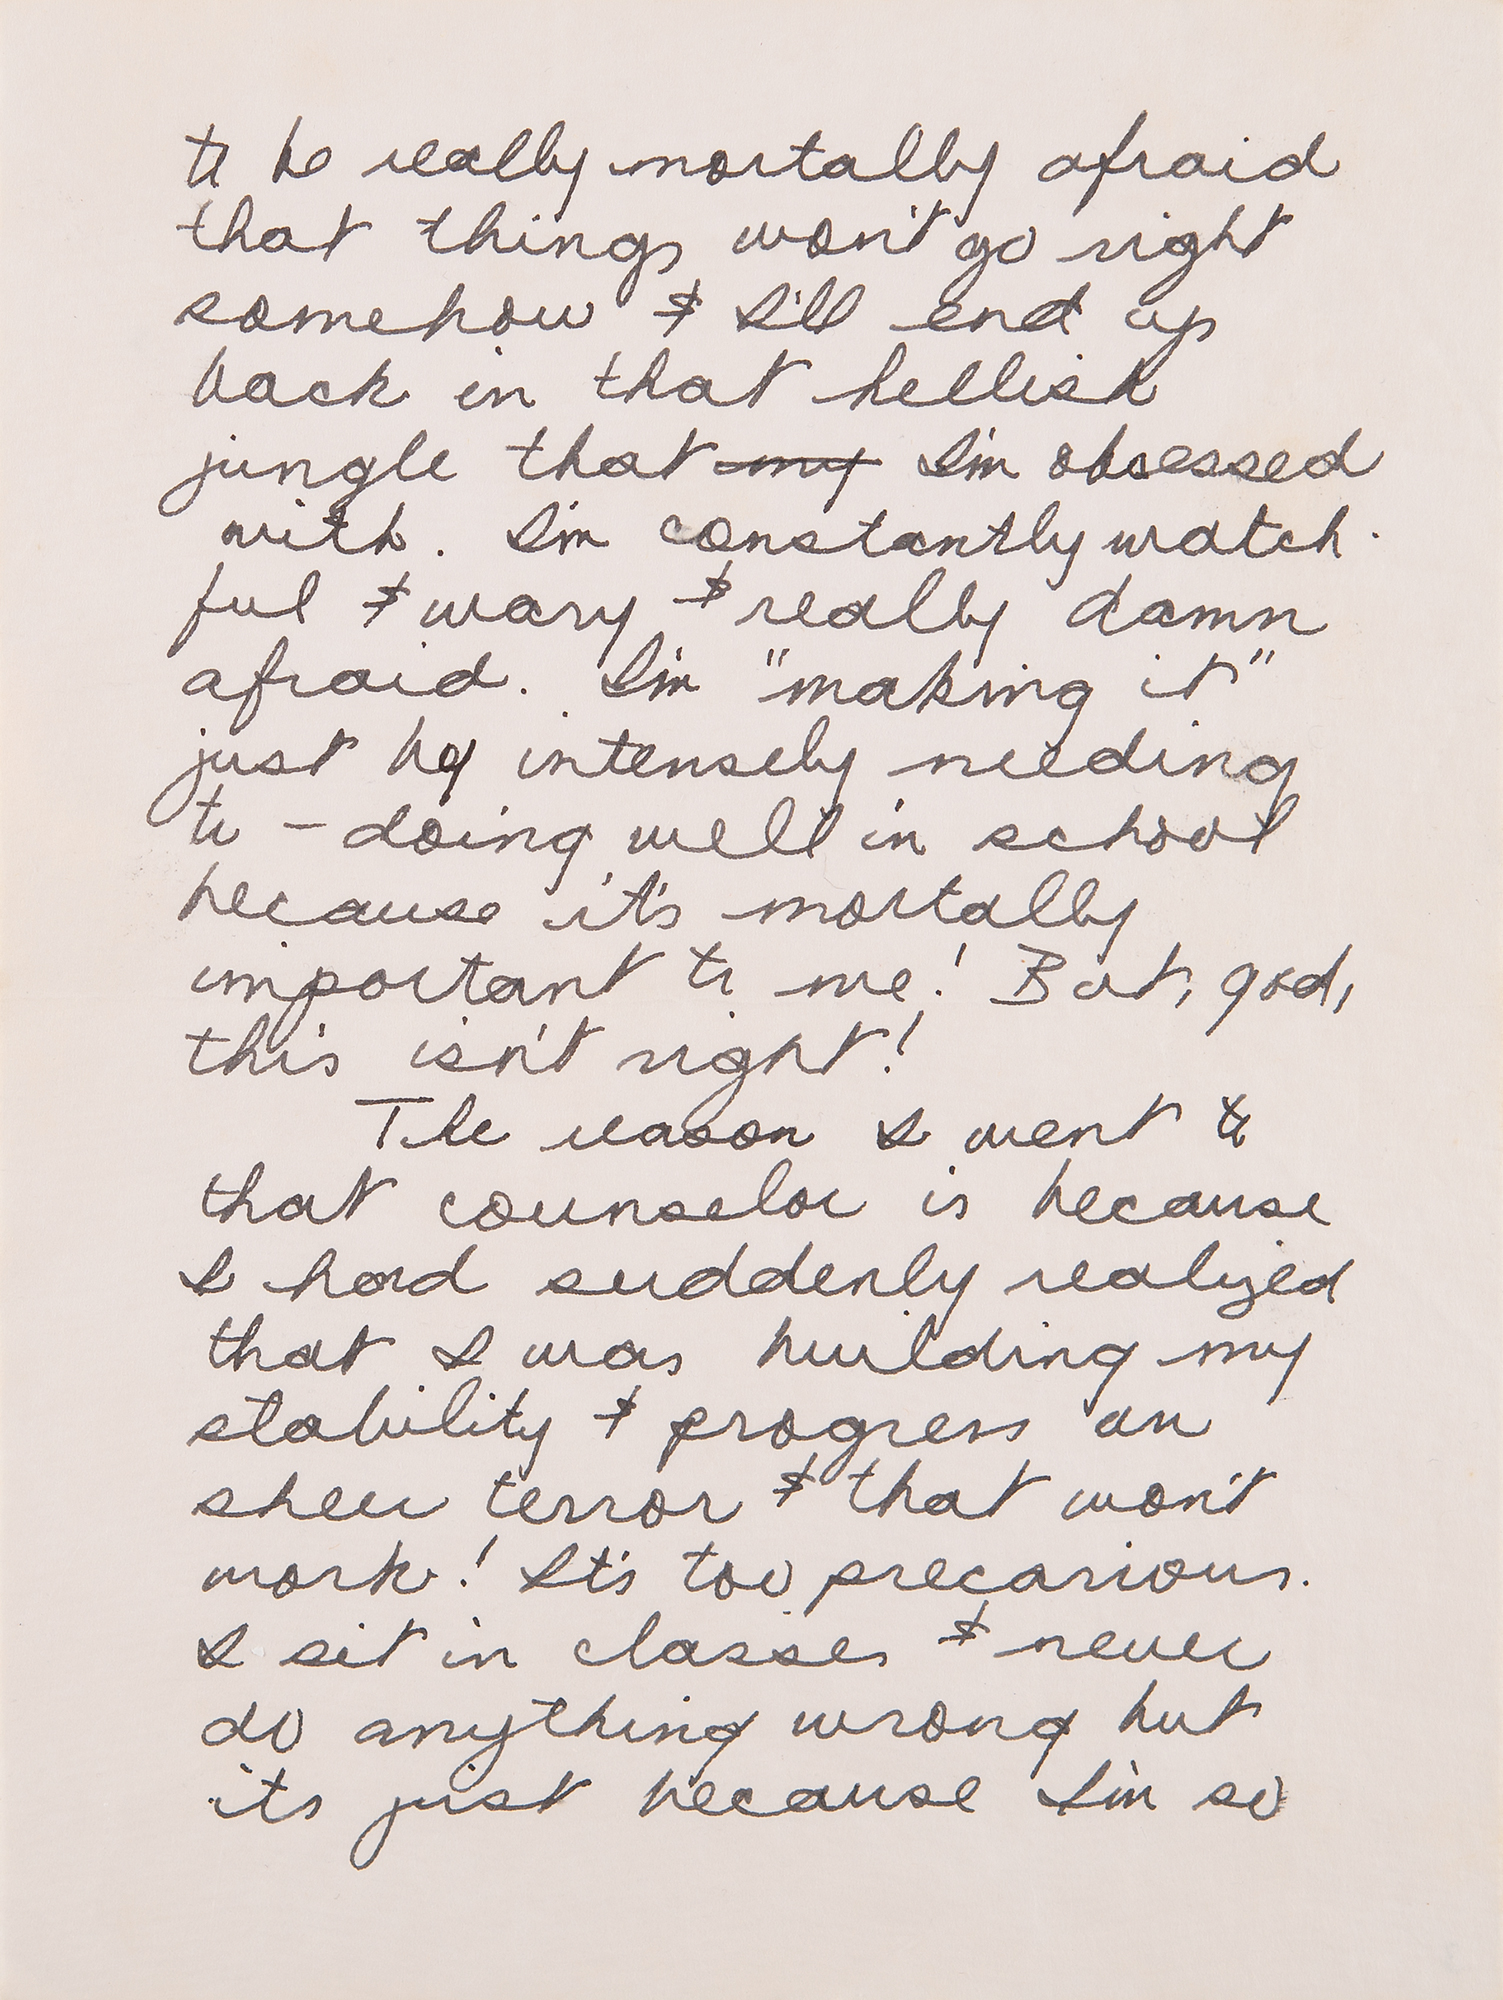 to be really mortally afraid
that things won't go right
somehow & I'll end up
back in that hellish
jungle that my I'm obsessed
with. I'm constantly watch-
ful & wary & really damn
afraid. I'm "making it"
just by intensely needing
to – doing well in school
because it's mortally
important to me! But, god,
this isn't right!
The reason I went to
that counselor is because
I had suddenly realized
that I was building my
stability & progress on
sheer terror & that won't
work! It's too precarious.
I sit in classes & never
do anything wrong but
its just because I'm so